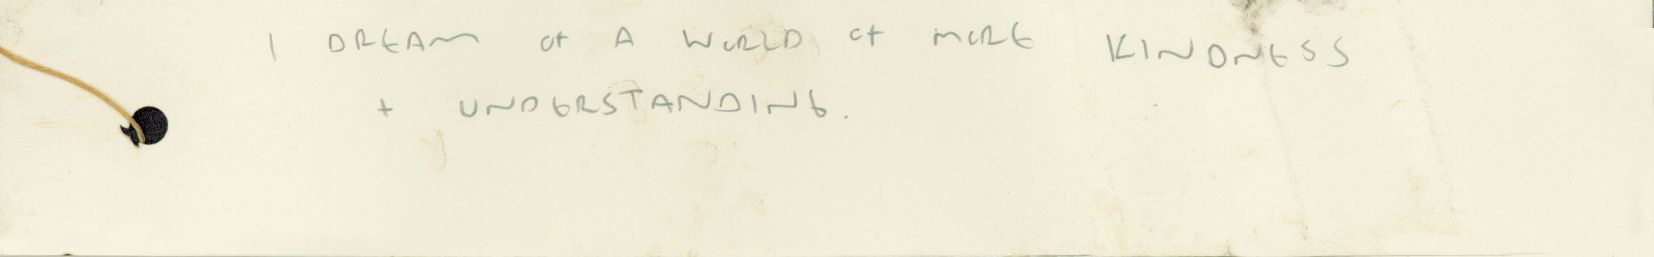 I DREAM OF A WORLD OF MORE KINDNESS
+ UNDERSTANDING.